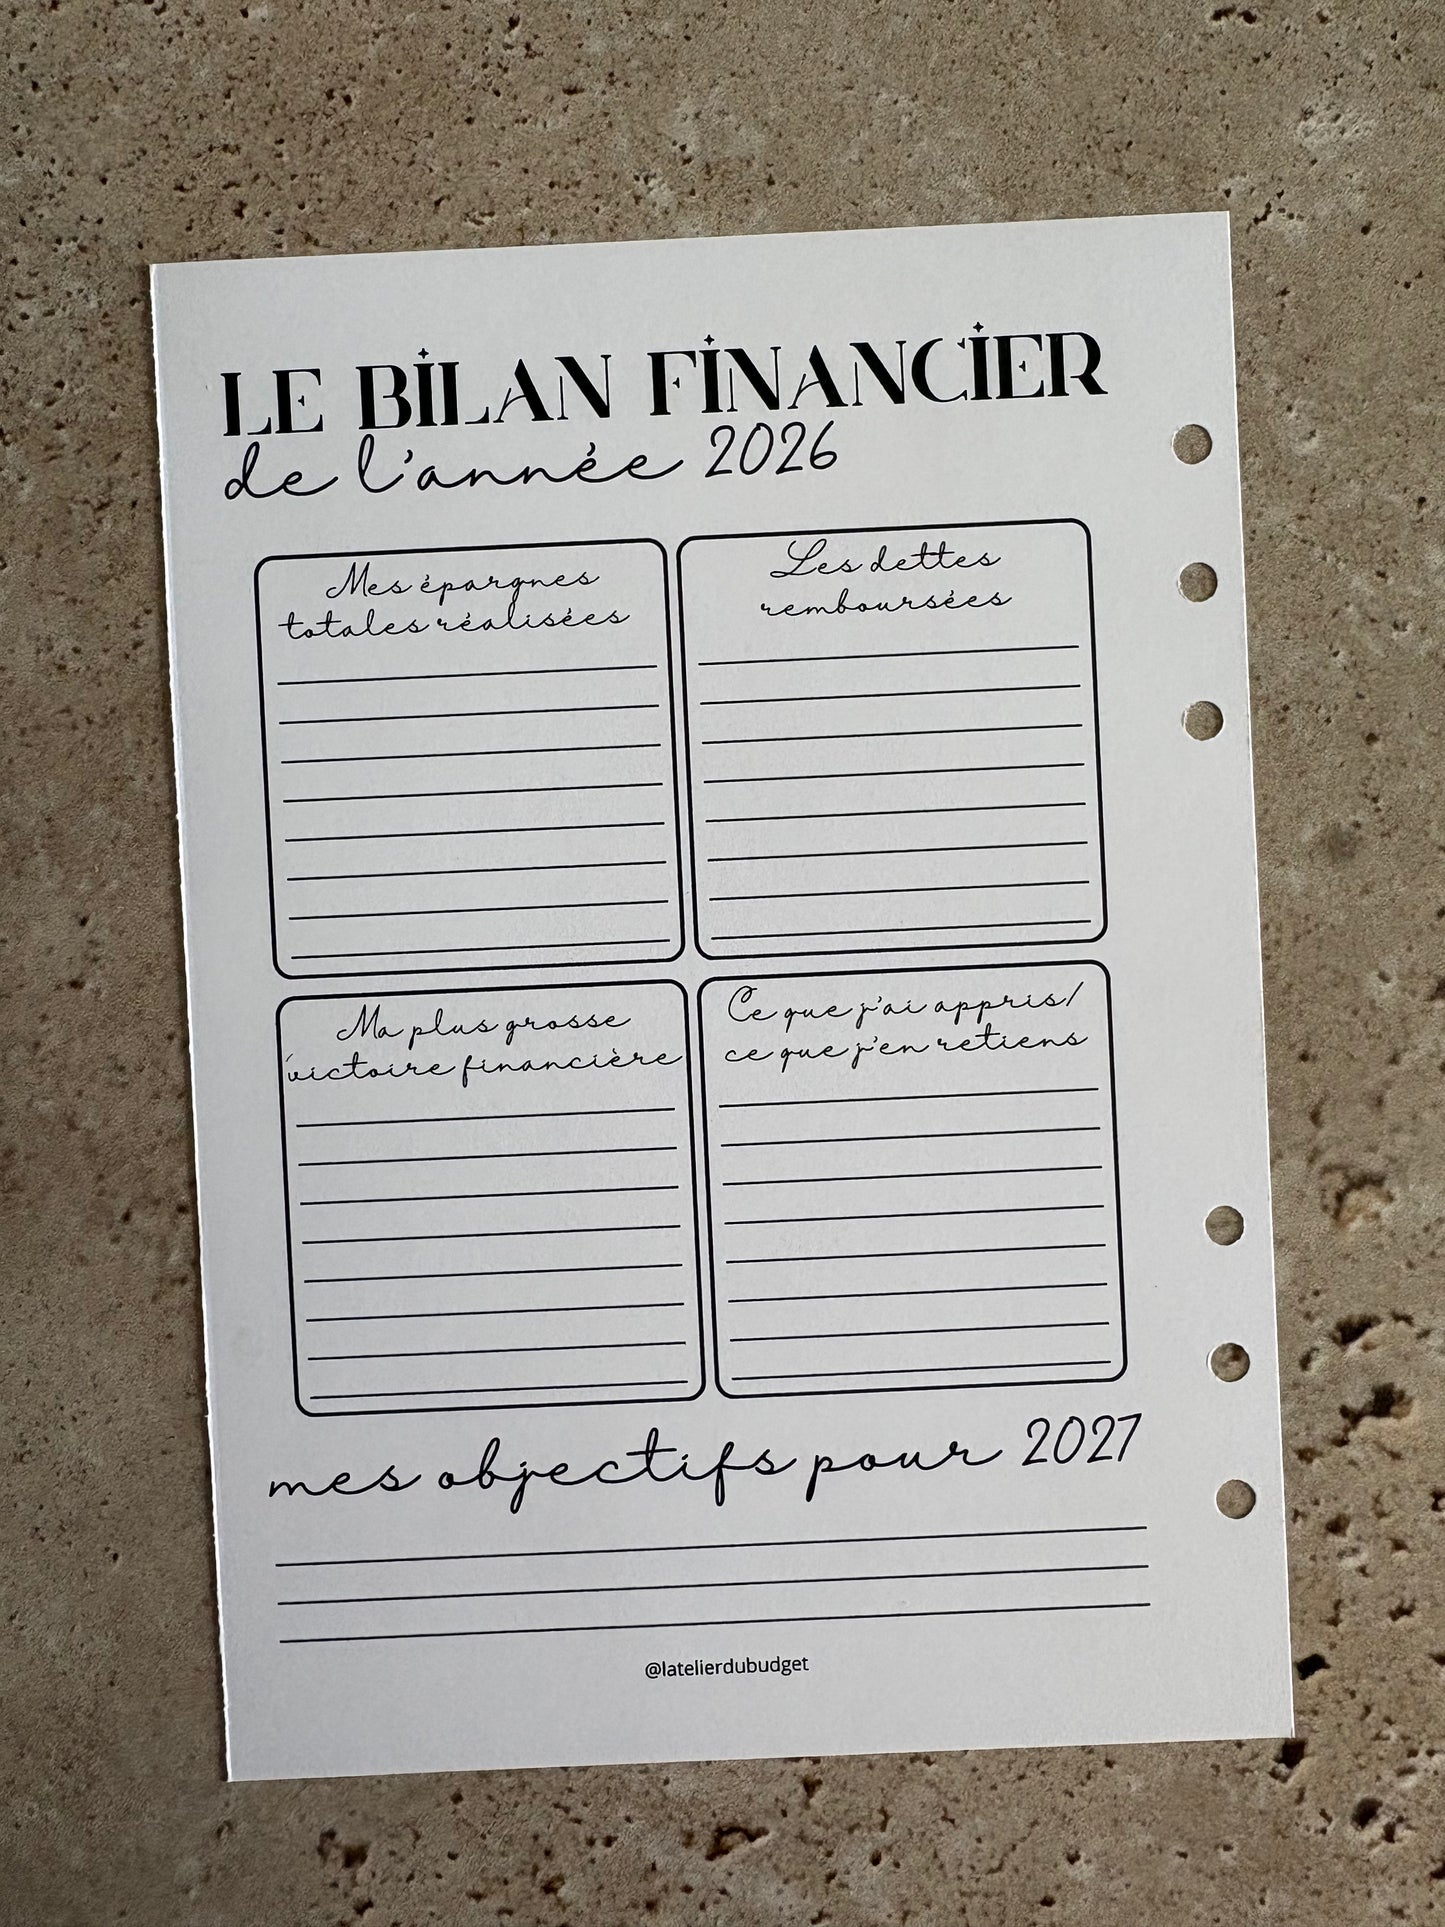 LE BILAN FINANCIER
de l'année 2026
Mes épargnes
totales réalisées
Les dettes
remboursées
Ma plus grosse
victoire financière
Ce que j'ai appris/
ce que j'en retiens
mes objectifs pour 2027
@latelierdubudget